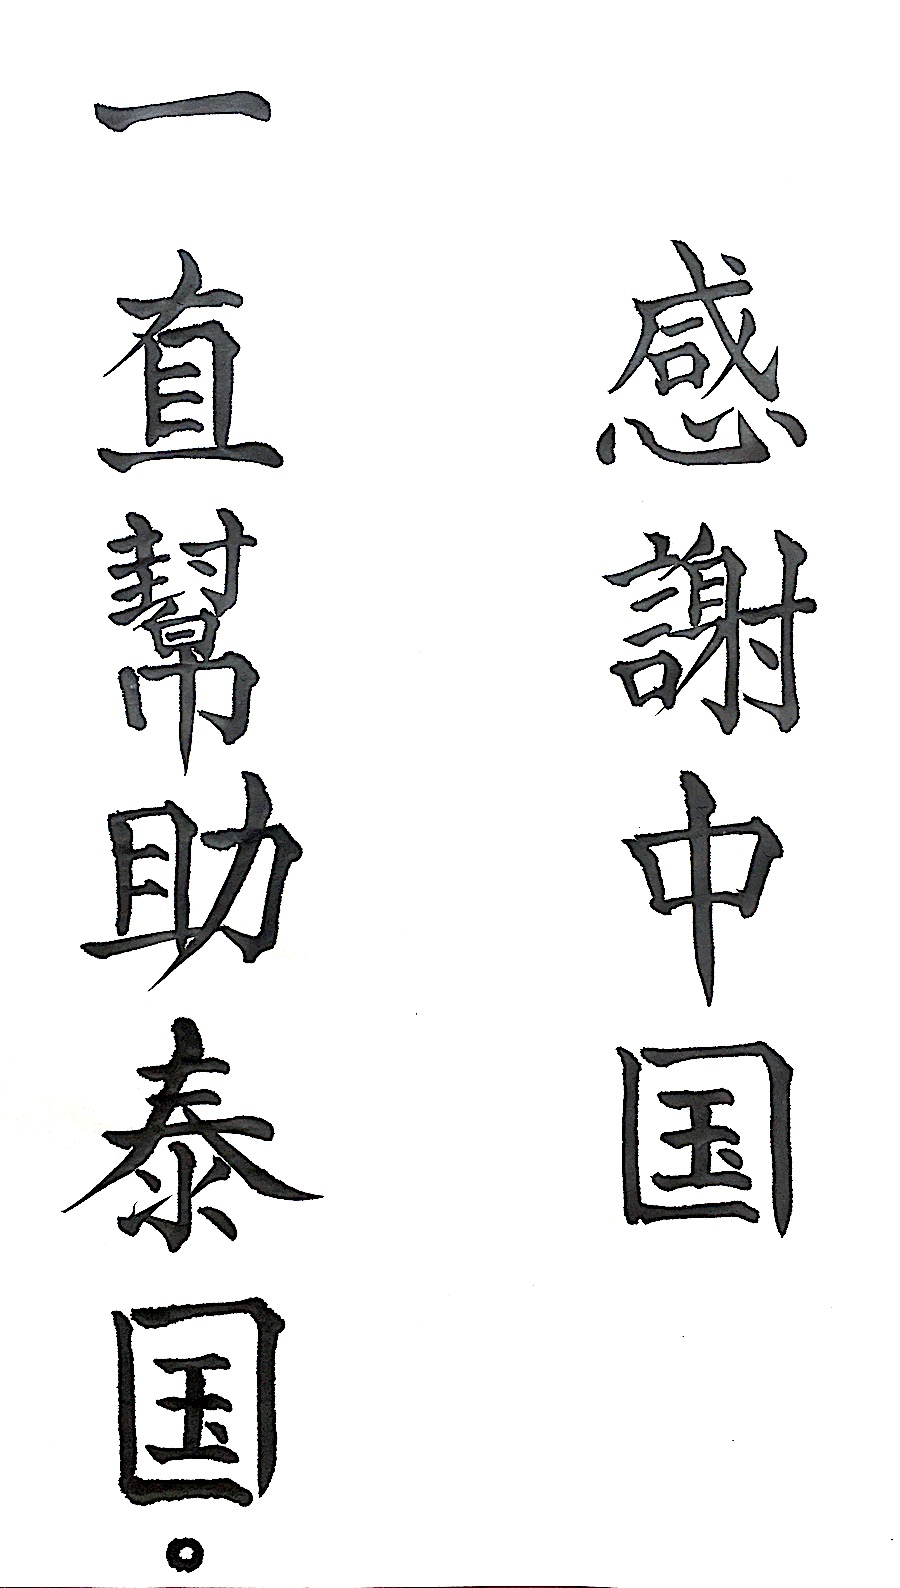 感謝中国
一直幫助泰国。